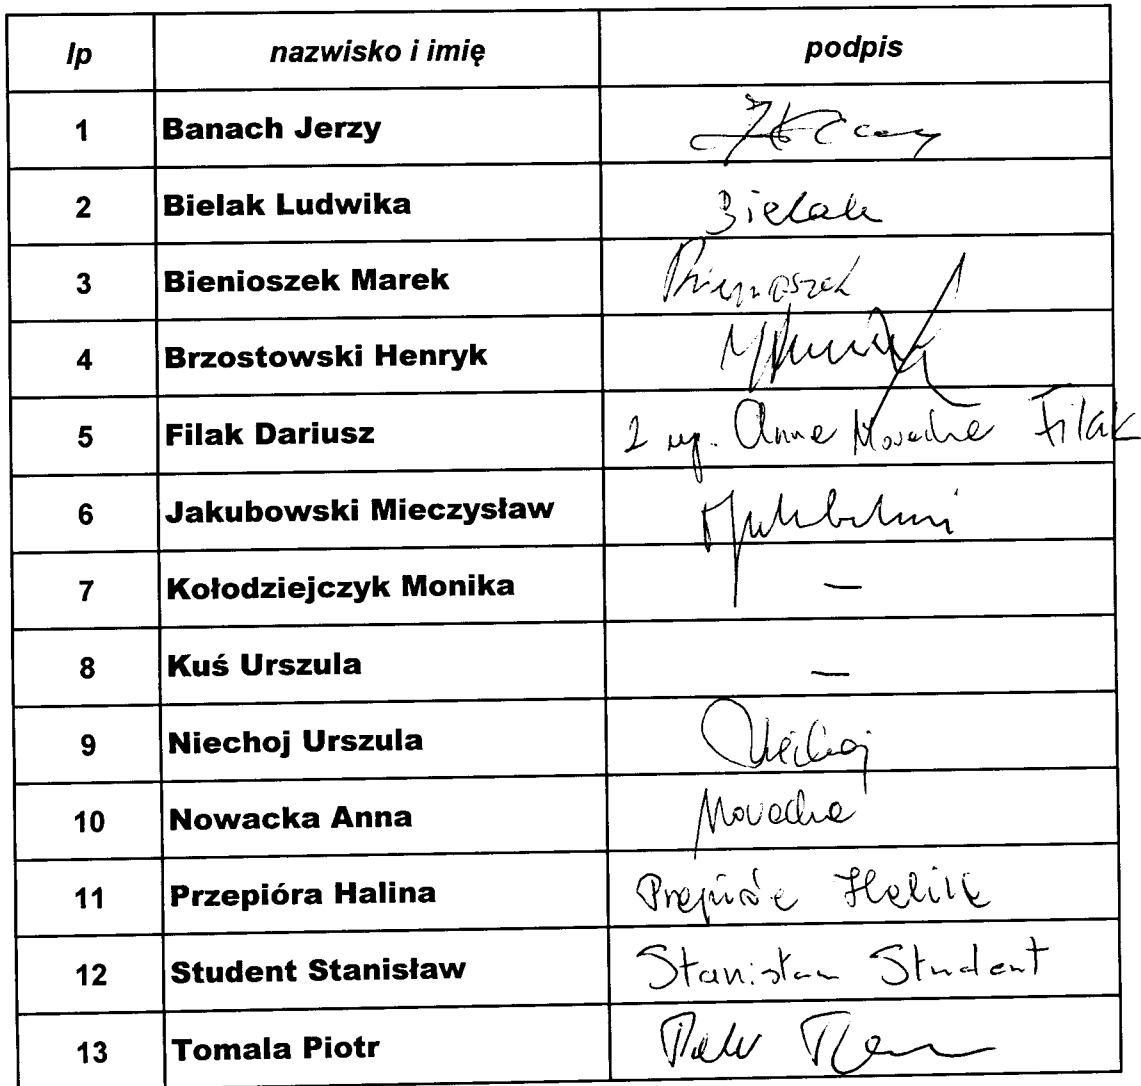 lp nazwisko i imię podpis
1 Banach Jerzy
2 Bielak Ludwika Bielak
3 Bienioszek Marek Bienioszek
4 Brzostowski Henryk
5 Filak Dariusz Anna Nowacka Filak
6 Jakubowski Mieczysław
7 Kołodziejczyk Monika —
8 Kuś Urszula —
9 Niechoj Urszula Niechoj
10 Nowacka Anna Nowacka
11 Przepióra Halina
12 Student Stanisław Stanisław Student
13 Tomala Piotr Piotr